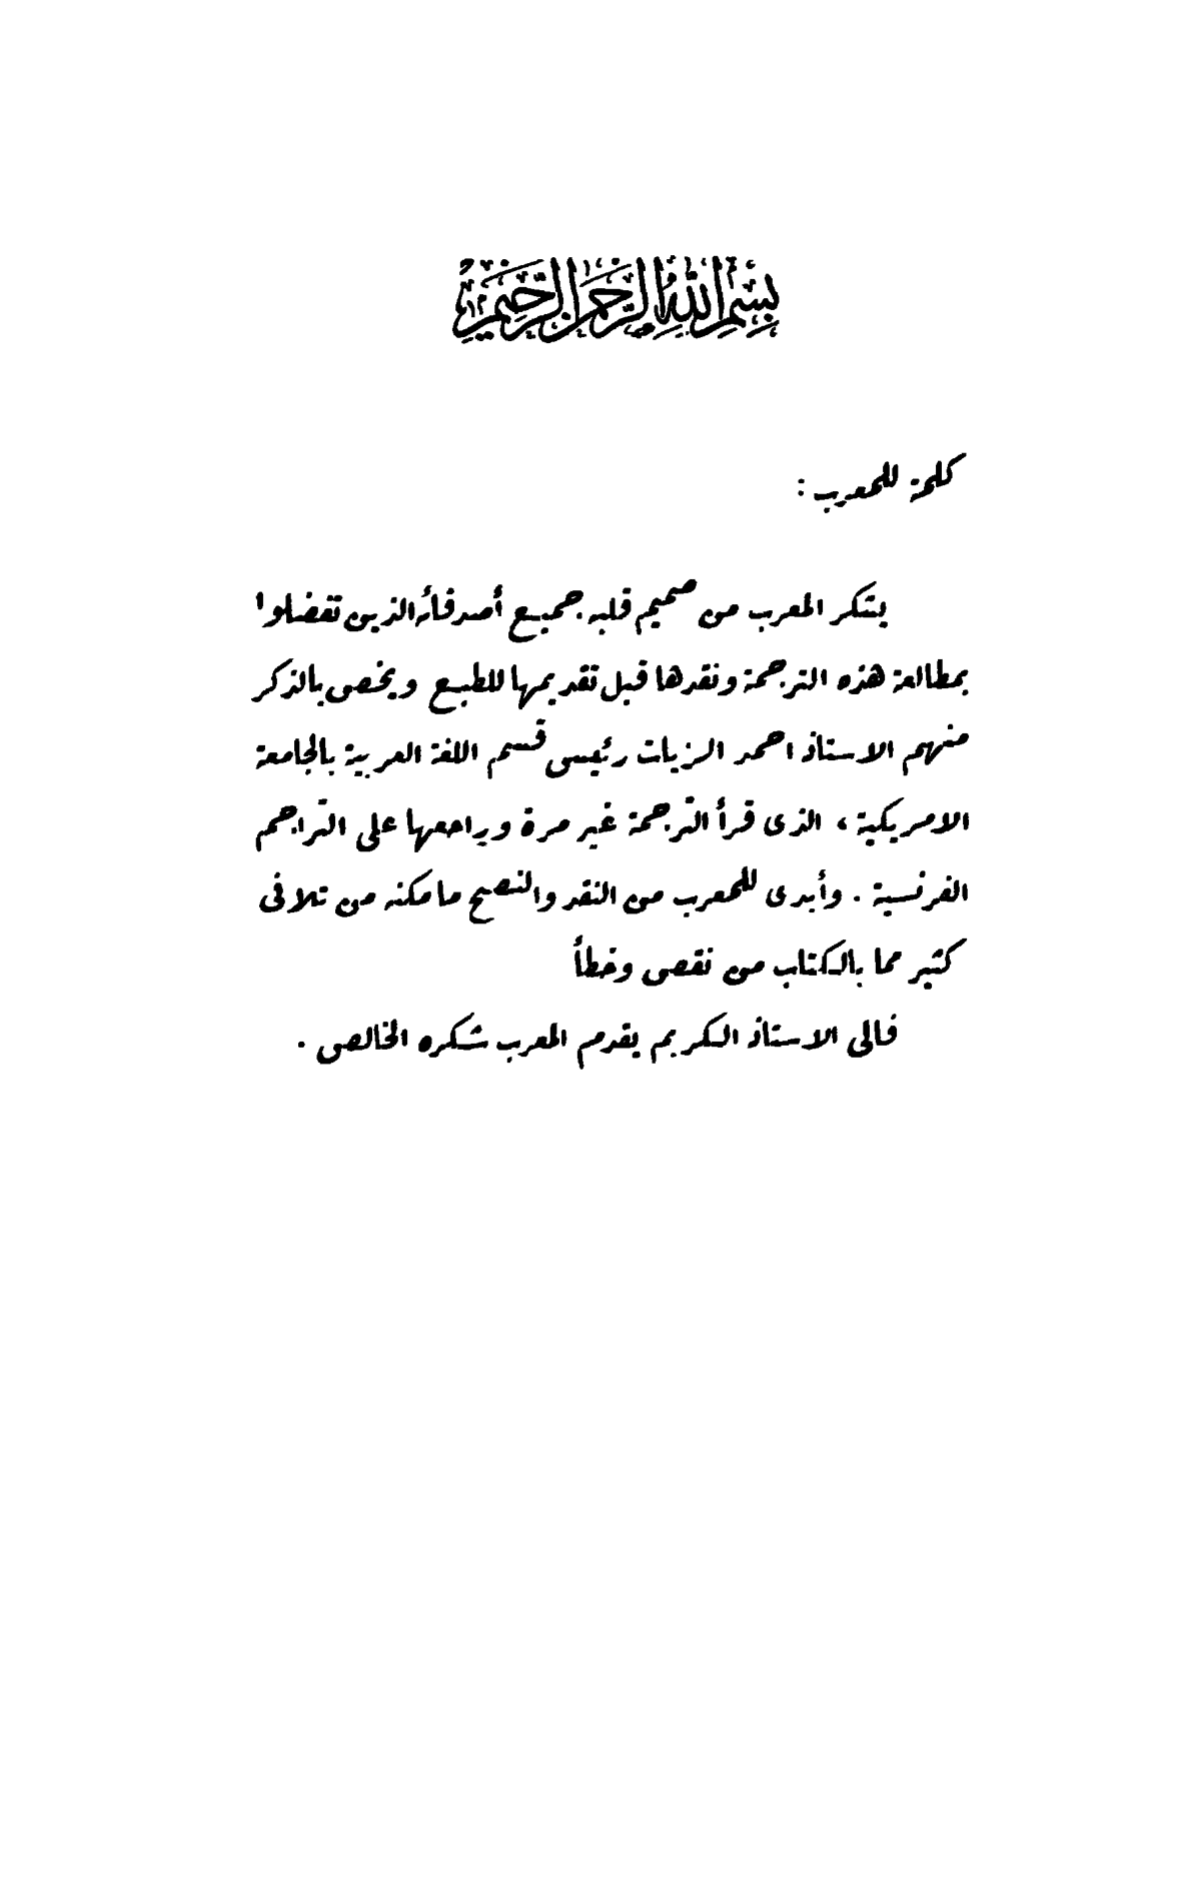 بِسْمِ اللهِ الرَّحْمَنِ الرَّحِيمِ
كلمة للمعرب :
يشكر المعرب من صميم قلبه جميع أصدقائه الذين تفضلوا
بمطالعة هذه الترجمة ونقدها قبل تقديمها للطبع ويخص بالذكر
منهم الاستاذ احمد الزيات رئيس قسم اللغة العربية بالجامعة
الامريكية ، الذى قرأ الترجمة غير مرة وراجعها على التراجم
الفرنسية . وأبدى للمعرب من النقد والنصح ما مكنه من تلافى
كثير مما بالكتاب من نقص وخطأ
فالى الاستاذ الكريم يقدم المعرب شكره الخالص .